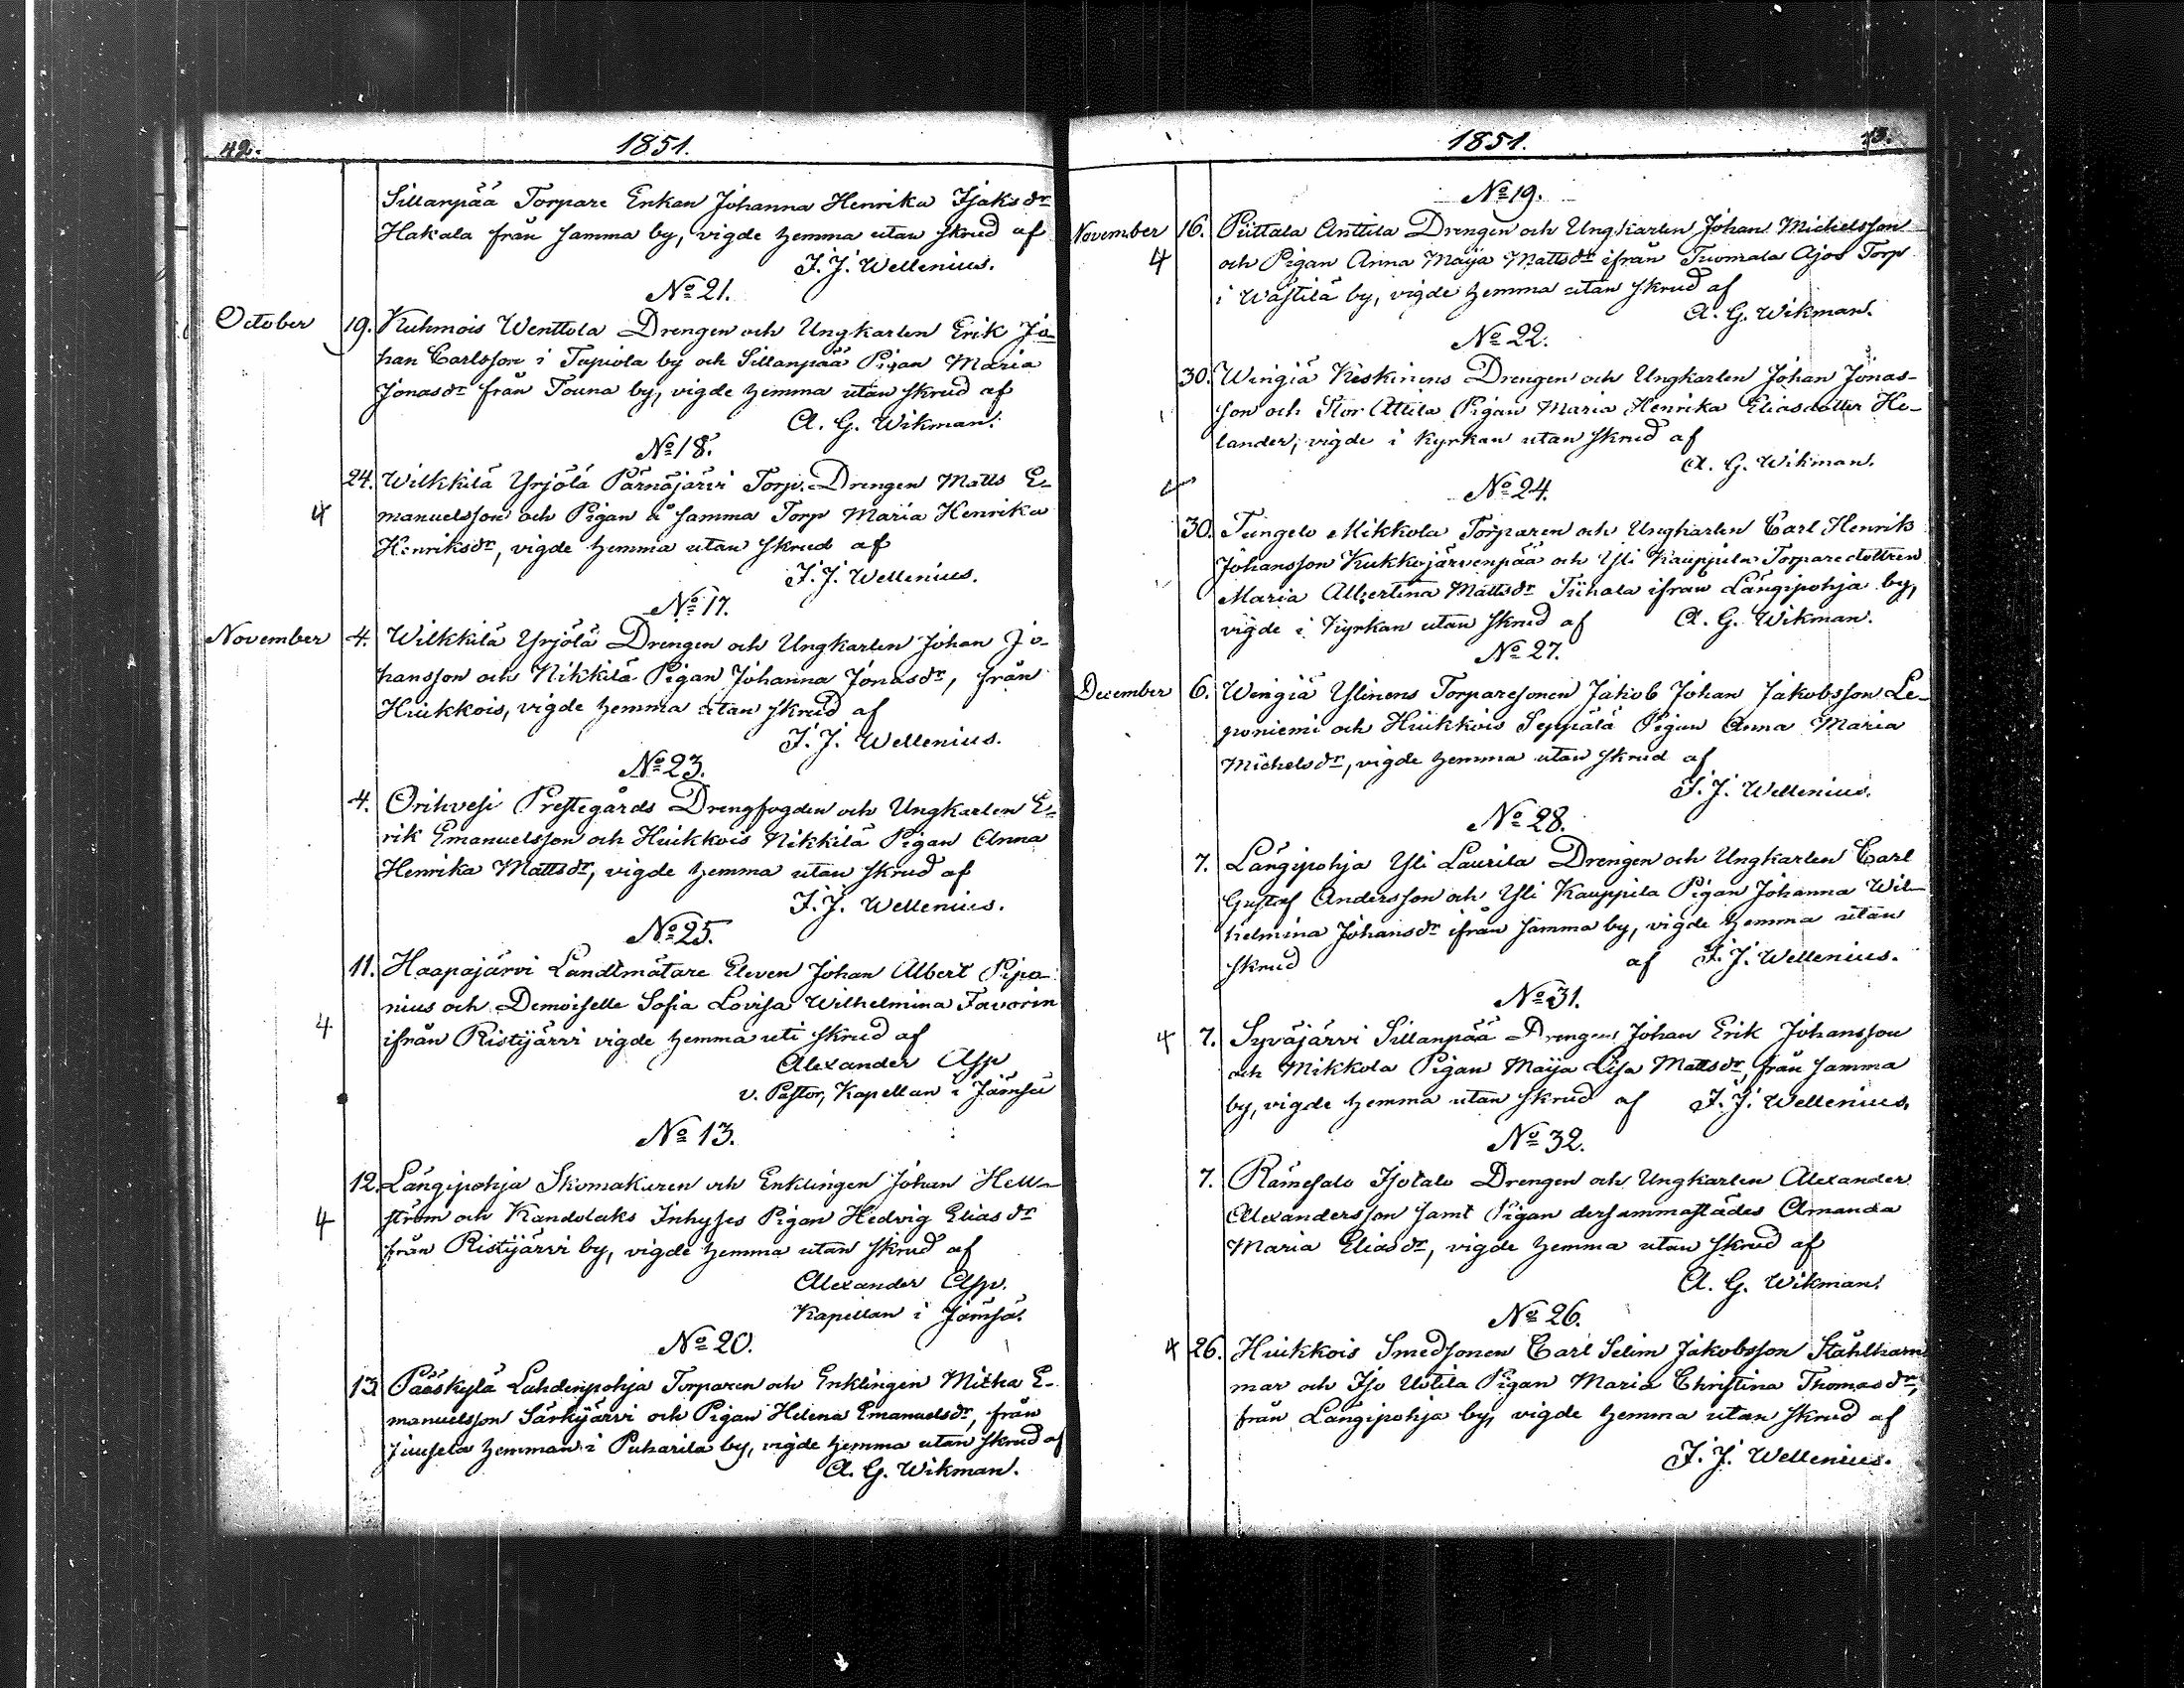 42.
1851.
Sillanpää Torpare Enkan Johanna Henrika Isaksdr
Hakala från samma by, vigde hemma utan skrud af
F. J. Wellenius.
No 21.
October 19. Kuhmois Wenttola Drengen och Ungkarlen Erik Jo-
han Carlsson i Tapiola by och Sillanpää Pigan Maria
Jonasdr från Touna by, vigde hemma utan skrud af
A. G. Wikman.
No 18.
24. Wilkkilä Yrjölä Pärnäjärvi Torp. Drengen Matts E-
4 manuelsson och Pigan å samma Torp Maria Henrika
Henriksdr, vigde hemma utan skrud af
F. J. Wellenius.
No 17.
November 4. Wilkkilä Yrjölä Drengen och Ungkarlen Johan Jo-
hansson och Nikkilä Pigan Johanna Jonasdr, från
Hiukkois, vigde hemma utan skrud af
F. J. Wellenius.
No 23.
4. Orihvesi Prestegårds Drengfogden och Ungkarlen E-
rik Emanuelsson och Hiukkois Nikkilä Pigan Anna
Henrika Mattsdr, vigde hemma utan skrud af
F. J. Wellenius.
No 25.
11. Haapajärvi Landtmätare Eleven Johan Albert Pipo-
nius och Demoiselle Sofia Lovisa Wilhelmina Favorin
4 ifrån Ristijärvi vigde hemma uti skrud af
Alexander Asp
v. Pastor, Kapellan i Jämsä
No 13.
12. Längipohja Skomakaren och Enklingen Johan Hell-
4 ström och Kandolaks Inhyses Pigan Hedvig Eliasdr
från Ristijärvi by, vigde hemma utan skrud af
Alexander Asp.
Kapellan i Jämsä.
No 20.
13. Pääskylä Lahdenpohja Torparen och Enklingen Mickä E-
manuelsson Särkijärvi och Pigan Helena Emanuelsdr, från
Juusela hemman i Puharila by, vigde hemma utan skrud af
A. G. Wikman.
1851.
43.
No 19.
November 16. Pittala Anttila Drengen och Ungkarlen Johan Michelsson
4 och Pigan Anna Maija Mattsdr ifrån Tuomala Ajos Torp
i Wästilä by, vigde hemma utan skrud af
A. G. Wikman.
No 22.
30. Wengiä Keskinens Drengen och Ungkarlen Johan Jonas-
son och Stor Attila Pigan Maria Henrika Eliasdotter He-
lander, vigde i Kyrkan utan skrud af
A. G. Wikman.
No 24.
30. Tungelo Mikkola Torparen och Ungkarlen Carl Henrik
Johansson Kukkojärvenpää och Yli Kauppila Torparedottren
Maria Albertina Mattsdr Tiihala ifrån Längipohja by,
vigde i Kyrkan utan skrud af A. G. Wikman.
No 27.
December 6. Wengiä Ylinens Torparesonen Jakob Johan Jakobsson Le-
poniemi och Hiukkois Seppälä Pigan Anna Maria
Michelsdr, vigde hemma utan skrud af
F. J. Wellenius.
No 28.
7. Längipohja Yli Laurila Drengen och Ungkarlen Carl
Gustaf Andersson och Yli Kauppila Pigan Johanna Wil-
helmina Johansdr ifrån samma by, vigde hemma utan
skrud af F. J. Wellenius.
No 31.
4 7. Syväjärvi Sillanpää Drengen Johan Erik Johansson
och Mikkola Pigan Maija Lisa Mattsdr, från samma
by, vigde hemma utan skrud af F. J. Wellenius.
No 32.
7. Rämesalo Isotalo Drengen och Ungkarlen Alexander
Alexandersson samt Pigan dersammastädes Amanda
Maria Eliasdr, vigde hemma utan skrud af
A. G. Wikman.
No 26.
4 26. Hiukkois Smedsonen Carl Selim Jakobsson Stålham-
mar och Iso Uotila Pigan Maria Christina Thomasdr,
från Längipohja by, vigde hemma utan skrud af
F. J. Wellenius.